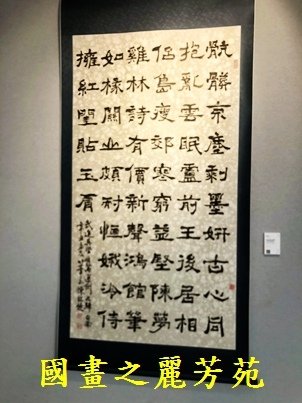 骯髒京塵剩墨妍古心同
抱亂雲眠盧前王後居相
侶島瘦郊寒窮益堅陳夢
雞林詩有價新聲鴻館筆
如椽閑坐頗耐恆娥泠侍
擁紅貼玉
國畫之麗芳苑